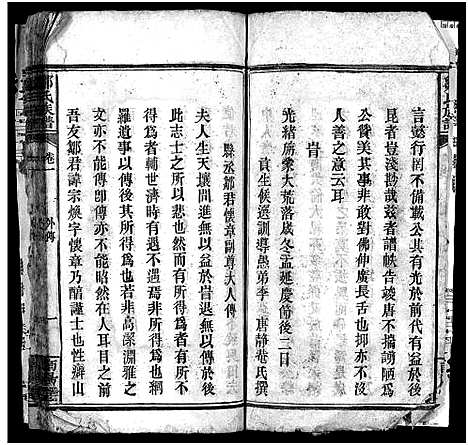 言懿行罔不備載公其有光於前代有前
昆者豈淺尠哉茲者譜帙告竣唐不揣謭陋爲
公贊美其事非敢對佛伸廣長舌也亦不沒
人善之意云耳
旹
光緒屠大荒落歲冬孟延慶節後二日
貢生候選訓導愚弟李唐靜菴氏撰
縣丞鄒君懷章副尊大人傳
夫人生天壤間進無以益於世退無以傳於後
此志士之所以悲也然而有所得爲者有所不
得爲者輔世濟時有遇不遇焉非所得爲也網
羅遺事以傳後其所得爲也若非高深淵雅之
文亦不能傳即傳亦不能昭然在人耳目之前
吾友鄒君諱宗煥字懷章乃醇謹士也性癖山
鄒氏族譜
卷一
外傳
一